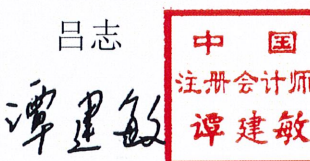 吕志
谭建敏
中国
注册会计师
谭建敏